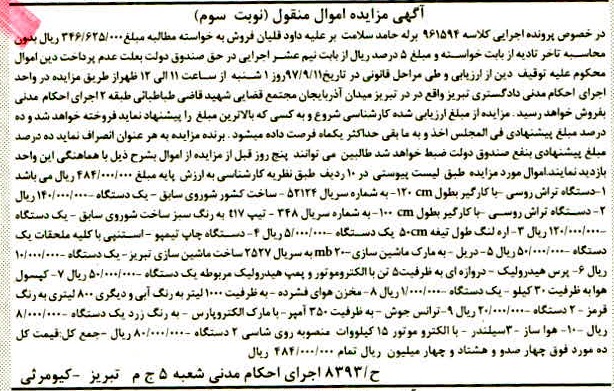 آگهی مزایده اموال منقول (نوبت سوم)
در خصوص پرونده اجرایی کلاسه ۹۶۱۵۹۴ برله حامد سلامت بر علیه داود قلیان فروش به خواسته مطالبه مبلغ ۳۴۶/۶۲۵/۰۰۰ ریال بدون
محاسبه تاخر تادیه از بابت خواسته و مبلغ ۵ درصد ریال از بابت نیم عشر اجرایی در حق صندوق دولت بعلت عدم پرداخت دین اموال
محکوم علیه توقیف دین از ارزیابی و طی مراحل قانونی در تاریخ ۹۷/۹/۱۱ روز ۱ شنبه از ساعت ۱۱ الی ۱۲ ظهر از طریق مزایده در واحد
اجرای احکام مدنی دادگستری تبریز واقع در در تبریز میدان آذربایجان مجتمع قضایی شهید قاضی طباطبائی طبقه ۲ اجرای احکام مدنی
بفروش خواهد رسید. مزایده از مبلغ ارزیابی شده کارشناسی شروع و به کسی که بالاترین مبلغ را پیشنهاد نماید فروخته خواهد شد و ده
درصد مبلغ پیشنهادی فی المجلس اخذ و به ما بقی حداکثر یکماه فرصت داده میشود. برنده مزایده به هر عنوان انصراف نماید ده درصد
مبلغ پیشنهادی بنفع صندوق دولت ضبط خواهد شد طالبین می توانند پنج روز قبل از مزایده از اموال بشرح ذیل با هماهنگی این واحد
بازدید نمایند.اموال مورد مزایده طبق لیست پیوستی در ۱۰ ردیف طبق نظریه کارشناسی به ارزش پایه مبلغ ۴۸۴/۰۰۰/۰۰۰ ریال می باشد
۱-دستگاه تراش روسی -با کارگیر بطول ۱۲۰ cm- به شماره سریال ۵۲۱۲۴ - ساخت کشور شوروی سابق - یک دستگاه -۱۴۰/۰۰۰/۰۰۰ریال
۲- دستگاه تراش روسی -با کارگیر بطول ۱۰۰ cm- به شماره سریال ۳۴۸ - تیپ t۱۷ به رنگ سبز ساخت شوروی سابق - یک دستگاه
-۱۲۰/۰۰۰/۰۰۰ریال ۳- اره لنگ طول تیغه ۵۰cm یک دستگاه -۵/۰۰۰/۰۰۰ ریال ۴-دستگاه چاپ تیمپو - استنپی با کلیه ملحقات یک
دستگاه -۵۰/۰۰۰/۰۰۰ ریال ۵- دریل - به مارک ماشین سازی -۲۰ mb به سریال ۲۵۲۷ ساخت ماشین سازی تبریز - یک دستگاه -۱۰/۰۰۰/۰۰۰
ریال ۶- پرس هیدرولیک - دروازه ای به ظرفیت ۵ تن با الکتروموتور و پمپ هیدرولیک مربوطه یک دستگاه -۵۰/۰۰۰/۰۰۰ ریال ۷- کپسول
هوا به ظرفیت ۳۰ کیلو - یک دستگاه -۱/۰۰۰/۰۰۰ ریال ۸- مخزن هوای فشرده - به ظرفیت ۱۰۰ لیتر به رنگ آبی و دیگری ۸۰۰ لیتری به رنگ
قرمز - ۲ دستگاه -۲۰/۰۰۰/۰۰۰ ریال ۹-ترانس جوش - به ظرفیت ۳۵۰ آمپر - با مارک الکتروپارس - به رنگ زرد یک دستگاه -۸/۰۰۰/۰۰۰
ریال -۱۰- هوا ساز -۳سیلندر - با الکترو موتور ۱۵ کیلووات منصوبه روی شاسی ۲ دستگاه -۸۰/۰۰۰/۰۰۰ ریال -جمع کل:قیمت کل
ده مورد فوق چهار صدو و هشتاد و چهار میلیون ریال تمام ۴۸۴/۰۰۰/۰۰۰ ریال
ح/۸۳۹۳ اجرای احکام مدنی شعبه ۵ ج م تبریز -کیومرثی